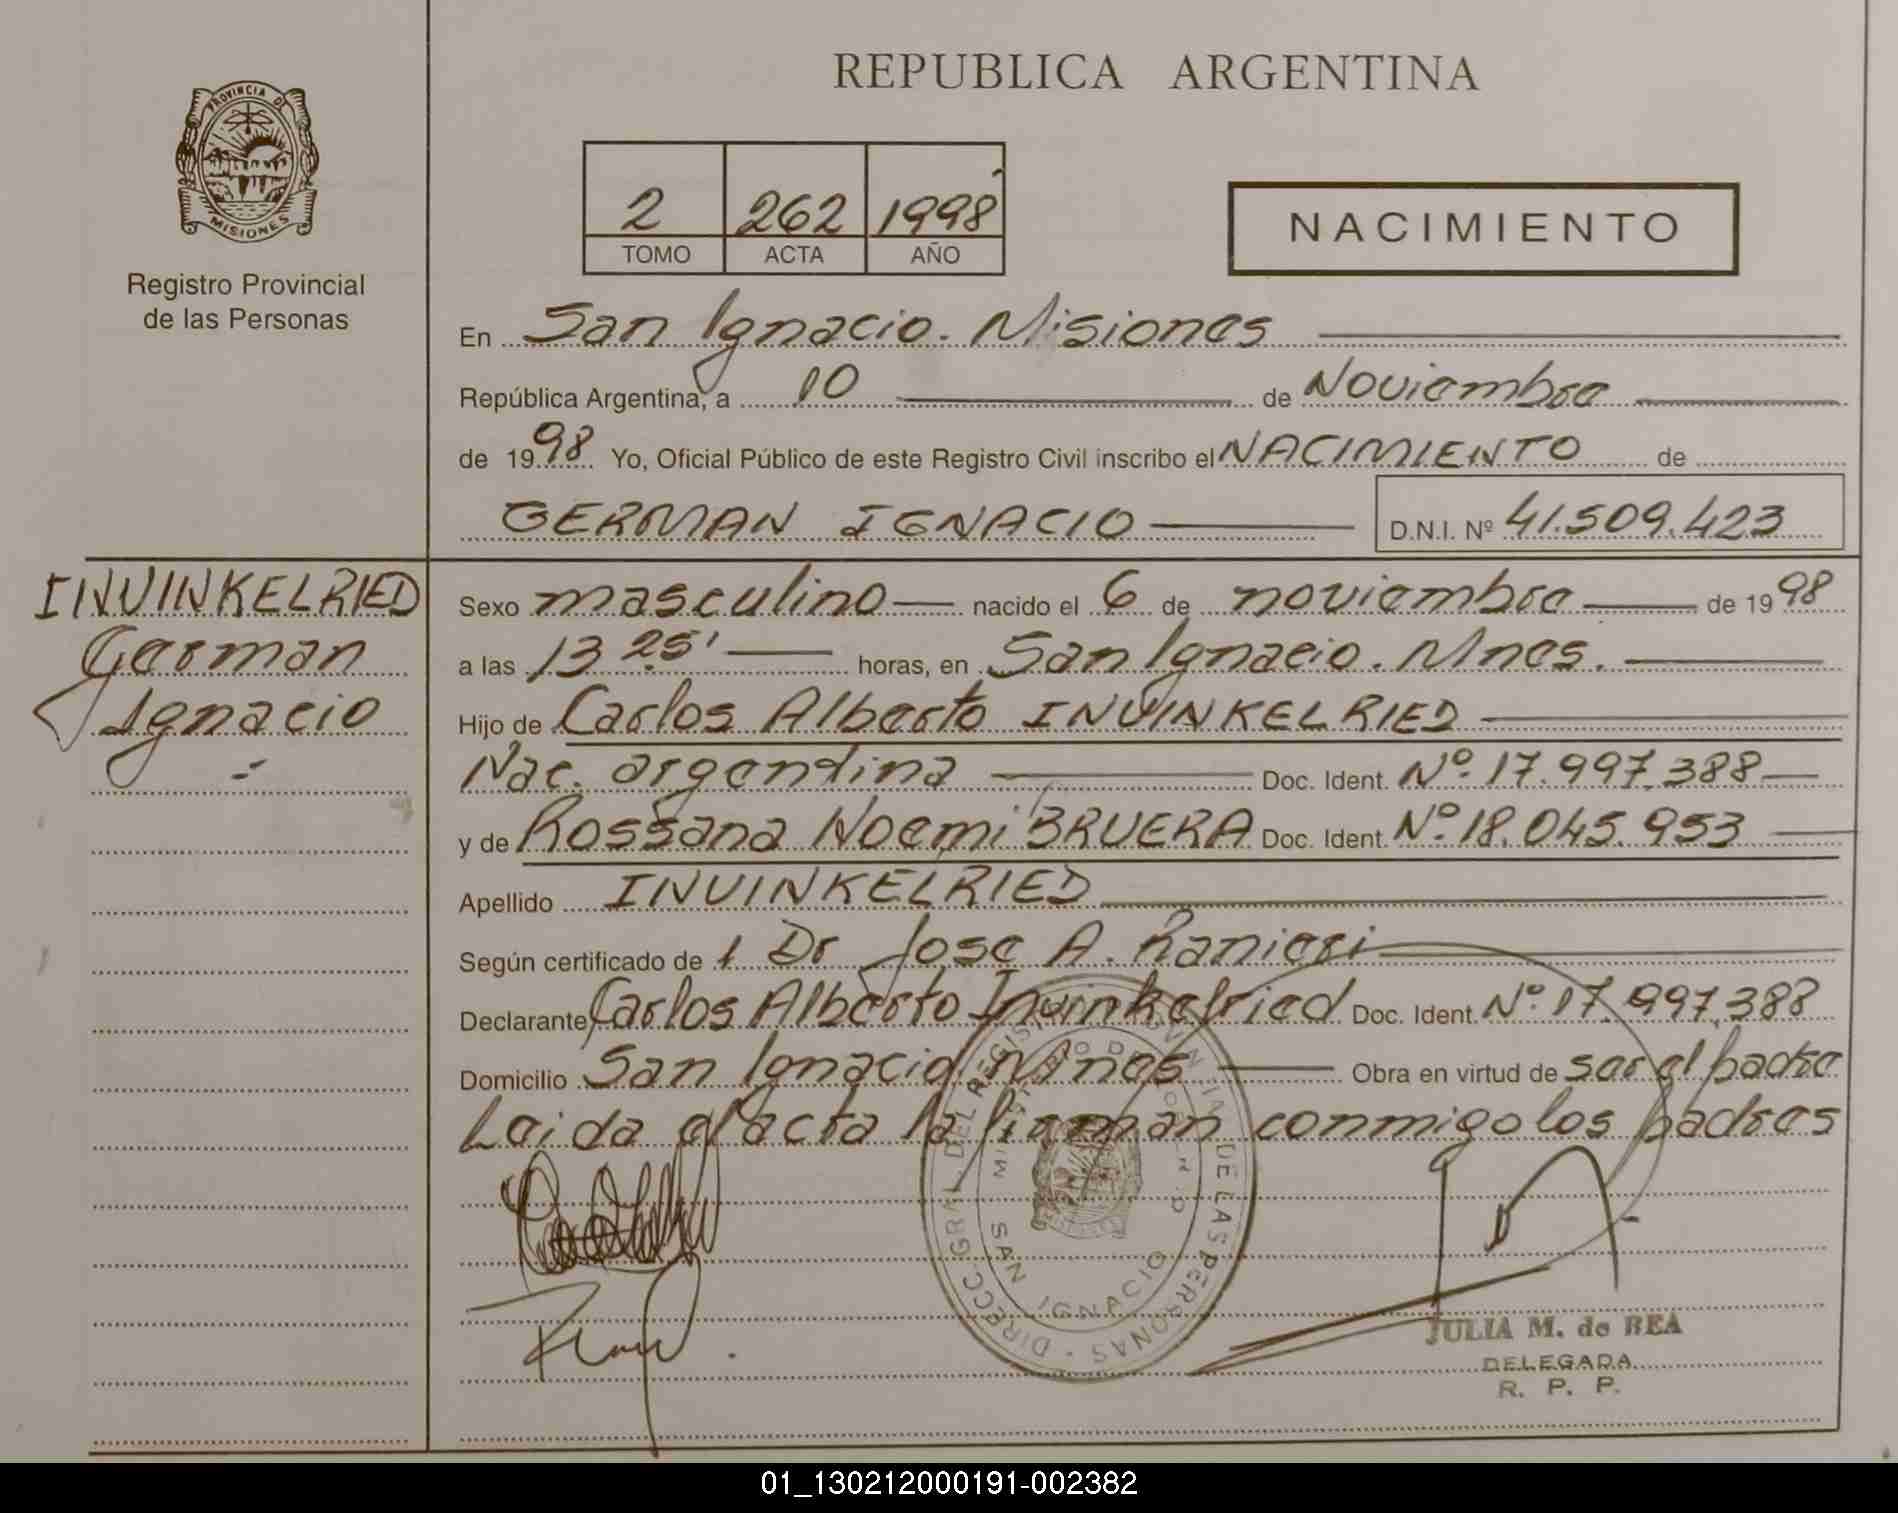 REPUBLICA ARGENTINA
PROVINCIA DE
MISIONES
Registro Provincial
de las Personas
2 262 1998
TOMO ACTA AÑO
NACIMIENTO
En San Ignacio. Misiones
República Argentina, a 10 de Noviembre
de 1998 Yo, Oficial Público de este Registro Civil inscribo el NACIMIENTO de
GERMAN IGNACIO D.N.I. Nº 41.509.423
INVINKELRIED
German
Ignacio
Sexo masculino nacido el 6 de noviembre de 1998
a las 13 25' horas, en San Ignacio. Mnes.
Hijo de Carlos Alberto INVINKELRIED
Nac. argentina Doc. Ident. Nº 17.997.388
y de Rossana Noemi BRUERA Doc. Ident. Nº 18.045.953
Apellido INVINKELRIED
Según certificado de 1 Dr Jose A. Ranieri
Declarante Carlos Alberto Invinkelried Doc. Ident. Nº 17.997.388
Domicilio San Ignacio Mnes Obra en virtud de ser el padre
Leida el acta la firman conmigo los padres
SAN IGNACIO
JULIA M. de BEA
DELEGADA
R. P. P.
01_130212000191-002382